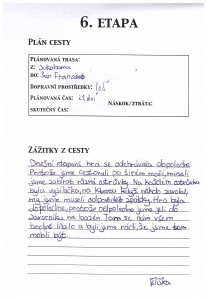 6. ETAPA
PLÁN CESTY
PLÁNOVANÁ TRASA:
Z: Jokohama
DO: San Francisco
DOPRAVNÍ PROSTŘEDKY: loď
PLÁNOVANÝ ČAS: 21 dní NÁSKOK/ZTRÁTA:
SKUTEČNÝ ČAS:
ZÁŽITKY Z CESTY
Dnešní etapová hra se odehrávala dopoledne.
Protože jsme cestovali po širém moři, museli
jsme zabírat různé ostrůvky. Na každém ostrůvku
byla vysílačka, na kterou když někdo zavolal,
my jsme museli odpovědět zpátky. Hra byla
dopoledne, protože odpoledne jsme jeli do
Žarovnice na bazén. Tam se nám všem
hodně líbilo a byli jsme rádi, že jsme tam
mohli být.
Eliška